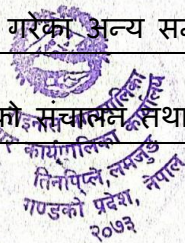 गरेका अन्य
को संचालन तथा
कार्यपालिका कार्यालय
तिनपिप्ले, लमजुङ
गण्डकी प्रदेश, नेपाल
२०७३